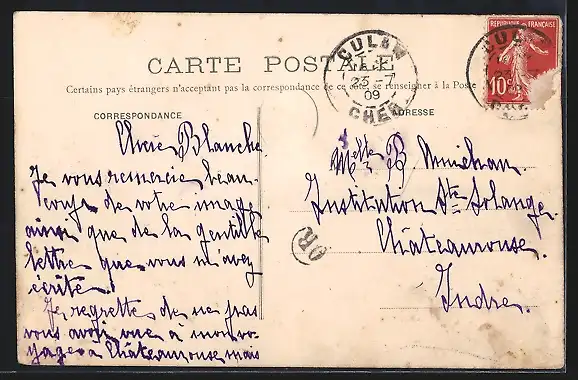 CARTE POSTALE
Certains pays étrangers n'acceptant pas la correspondance de ce côté, se renseigner à la Poste
CORRESPONDANCE
ADRESSE
CULAN
23 -7
09
CHER
REPUBLIQUE FRANÇAISE
10c
OR
Chère Blanche
Je vous remercie beau-
coup de votre image
ainsi que de la gentille
lettre que vous m'avez
écrite.
Je regrette de ne pas
vous avoir vue à mon vo-
yage à Châteauroux mais
Melle B
Institution Ste Solange
Châteauroux
Indre